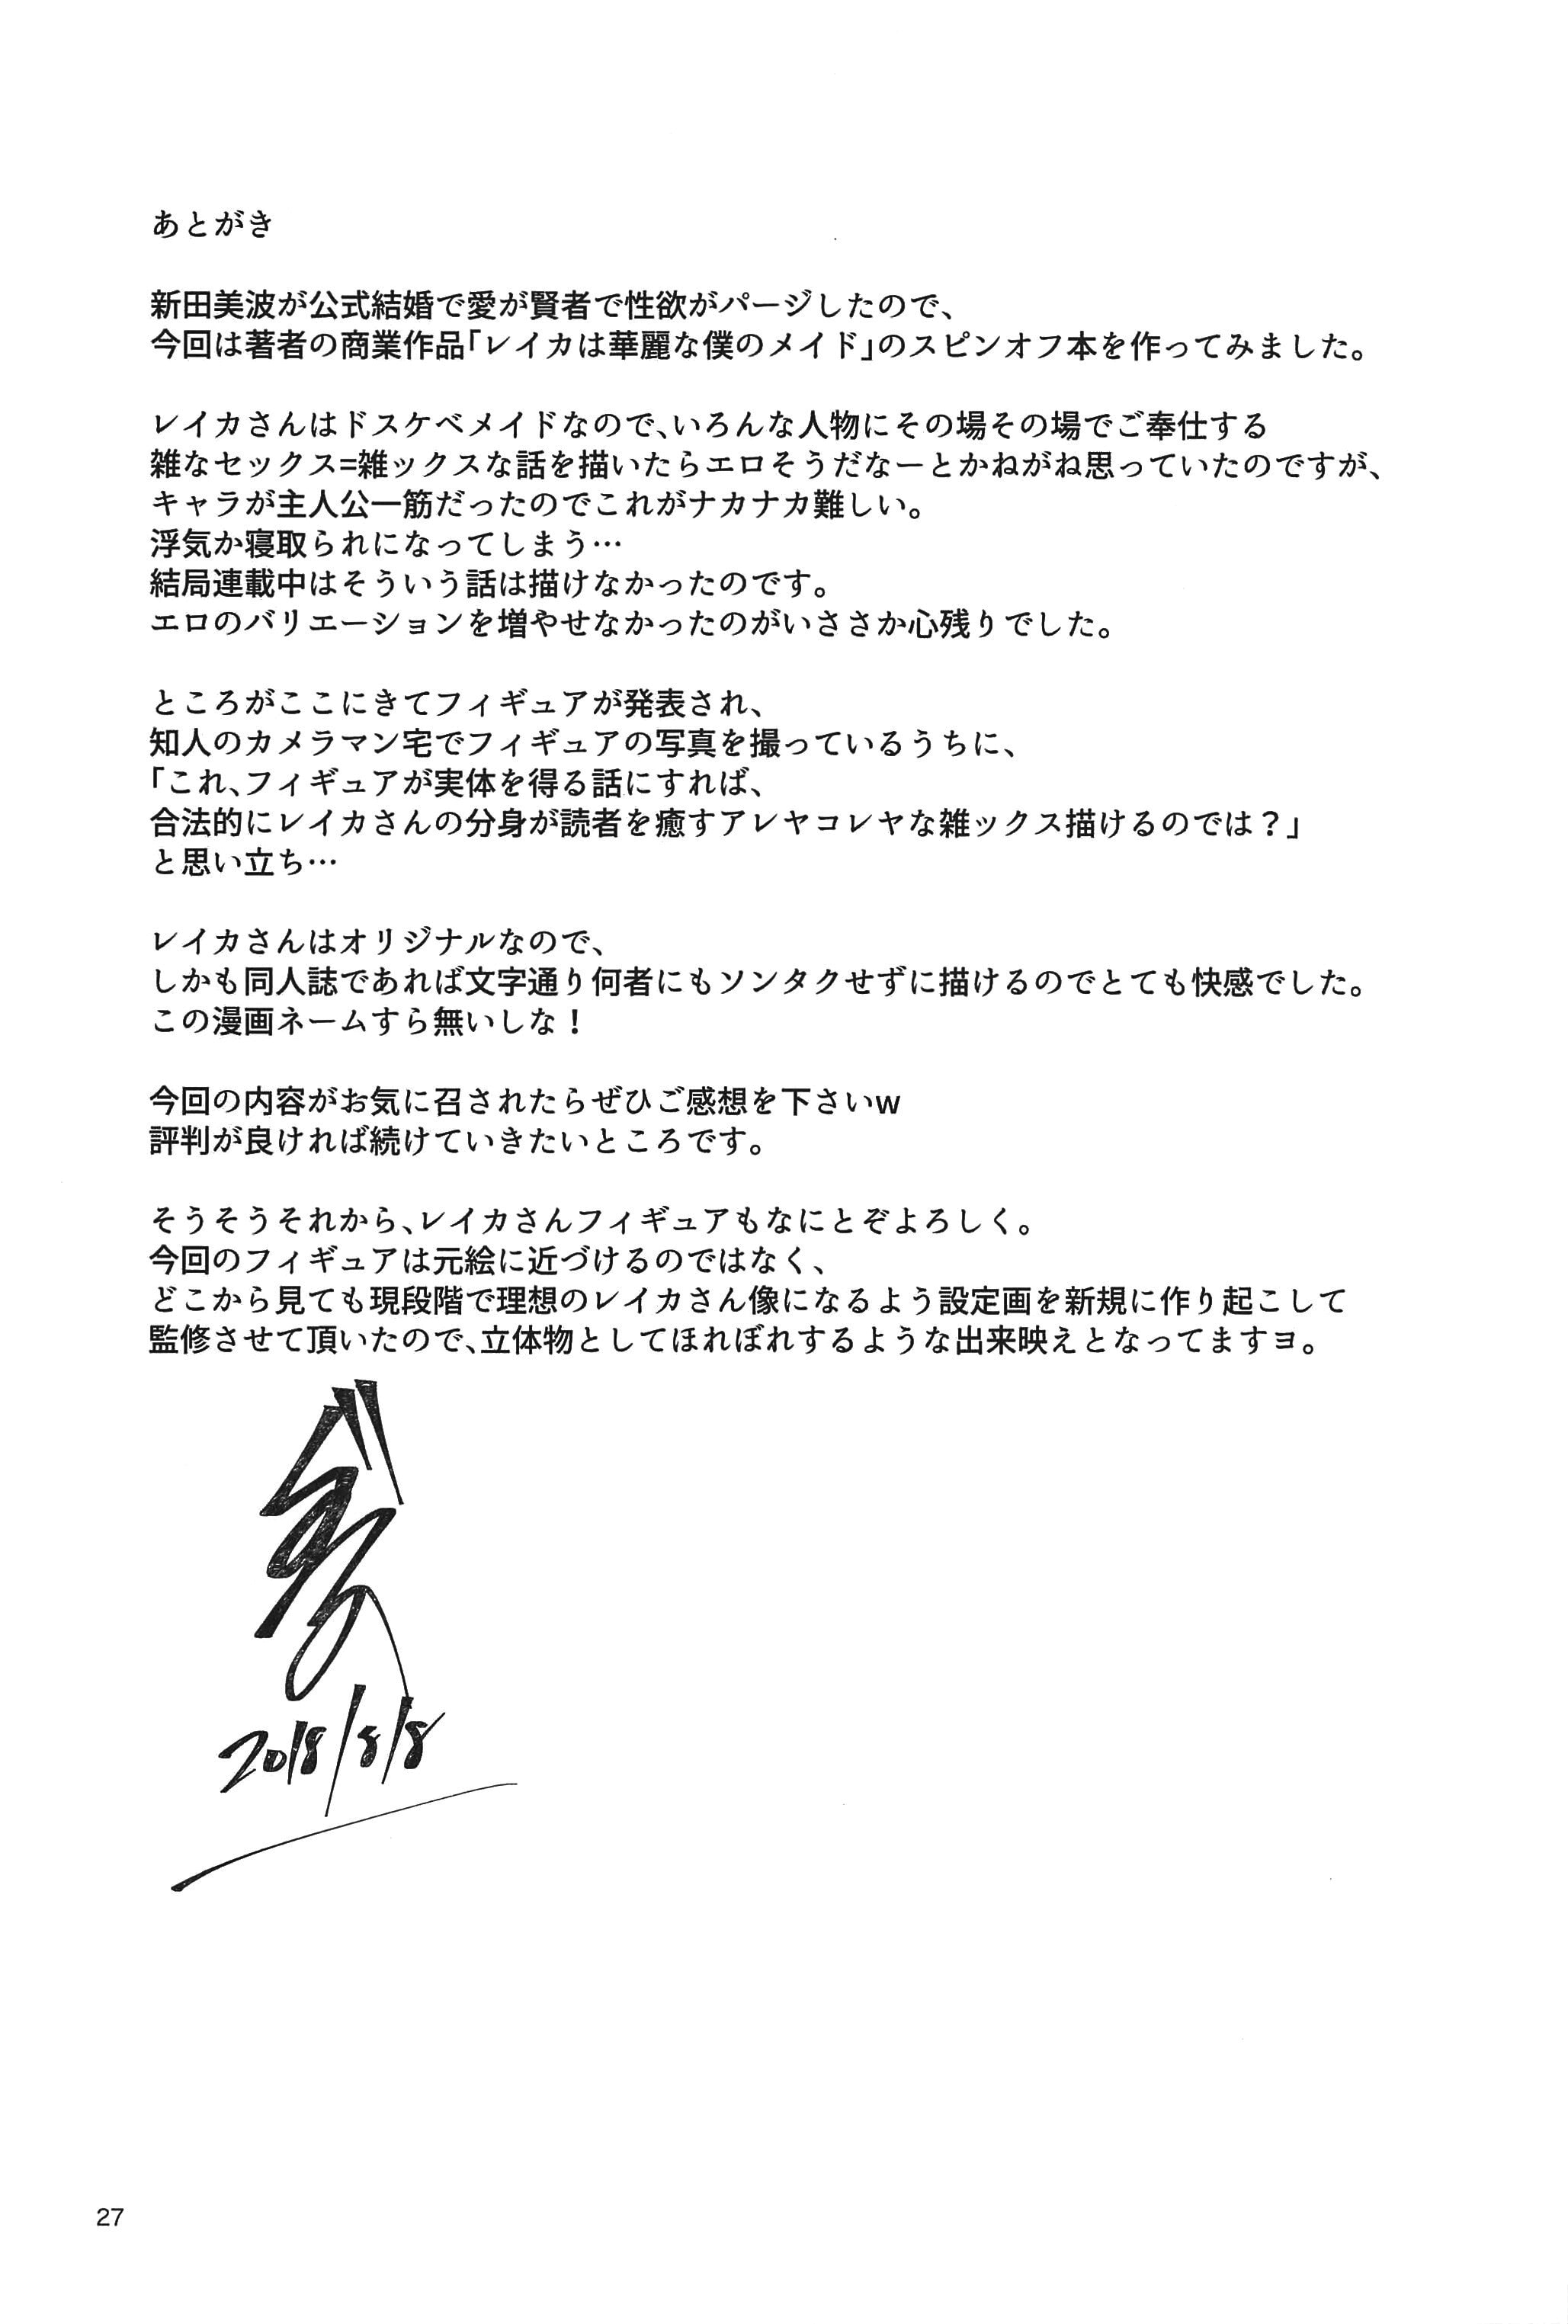 あとがき
新田美波が公式結婚で愛が賢者で性欲がパージしたので、
今回は著者の商業作品「レイカは華麗な僕のメイド」のスピンオフ本を作ってみました。
レイカさんはドスケベメイドなので、いろんな人物にその場その場でご奉仕する
雑なセックス=雑ックスな話を描いたらエロそうだなーとかねがね思っていたのですが、
キャラが主人公一筋だったのでこれがナカナカ難しい。
浮気か寝取られになってしまう…
結局連載中はそういう話は描けなかったのです。
エロのバリエーションを増やせなかったのがいささか心残りでした。
ところがここにきてフィギュアが発表され、
知人のカメラマン宅でフィギュアの写真を撮っているうちに、
「これ、フィギュアが実体を得る話にすれば、
合法的にレイカさんの分身が読者を癒すアレヤコレヤな雑ックス描けるのでは？」
と思い立ち…
レイカさんはオリジナルなので、
しかも同人誌であれば文字通り何者にもソンタクせずに描けるのでとても快感でした。
この漫画ネームすら無いしな！
今回の内容がお気に召されたらぜひご感想を下さいw
評判が良ければ続けていきたいところです。
そうそうそれから、レイカさんフィギュアもなにとぞよろしく。
今回のフィギュアは元絵に近づけるのではなく、
どこから見ても現段階で理想のレイカさん像になるよう設定画を新規に作り起こして
監修させて頂いたので、立体物としてほれぼれするような出来映えとなってますヨ。
2018/8/8
27